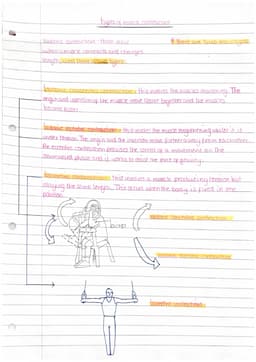 Types of muscle contractions
Isotonic contractions: These occur
when a muscle contracts and changes
length and there are types.
Isotonic concentric contraction - this involves the muscles shortening. The
origin and insertion of the muscle move closer together and the muscles
become
Isotonic eccentric contraction - this involves the muscle lengthening whilst it is
under tension. The origin and the insertion move further away from each other.
An eccentric contraction provides the control of a movement on the
downward phase and it works to resist the force of gravity.
Isometric contractions - This involves a muscle producing tension but
staying the same length. This occurs when the body is fixed in one
position.
bicep
Isotonic concentric contraction
Isotonic eccentric contraction
Isometric contraction